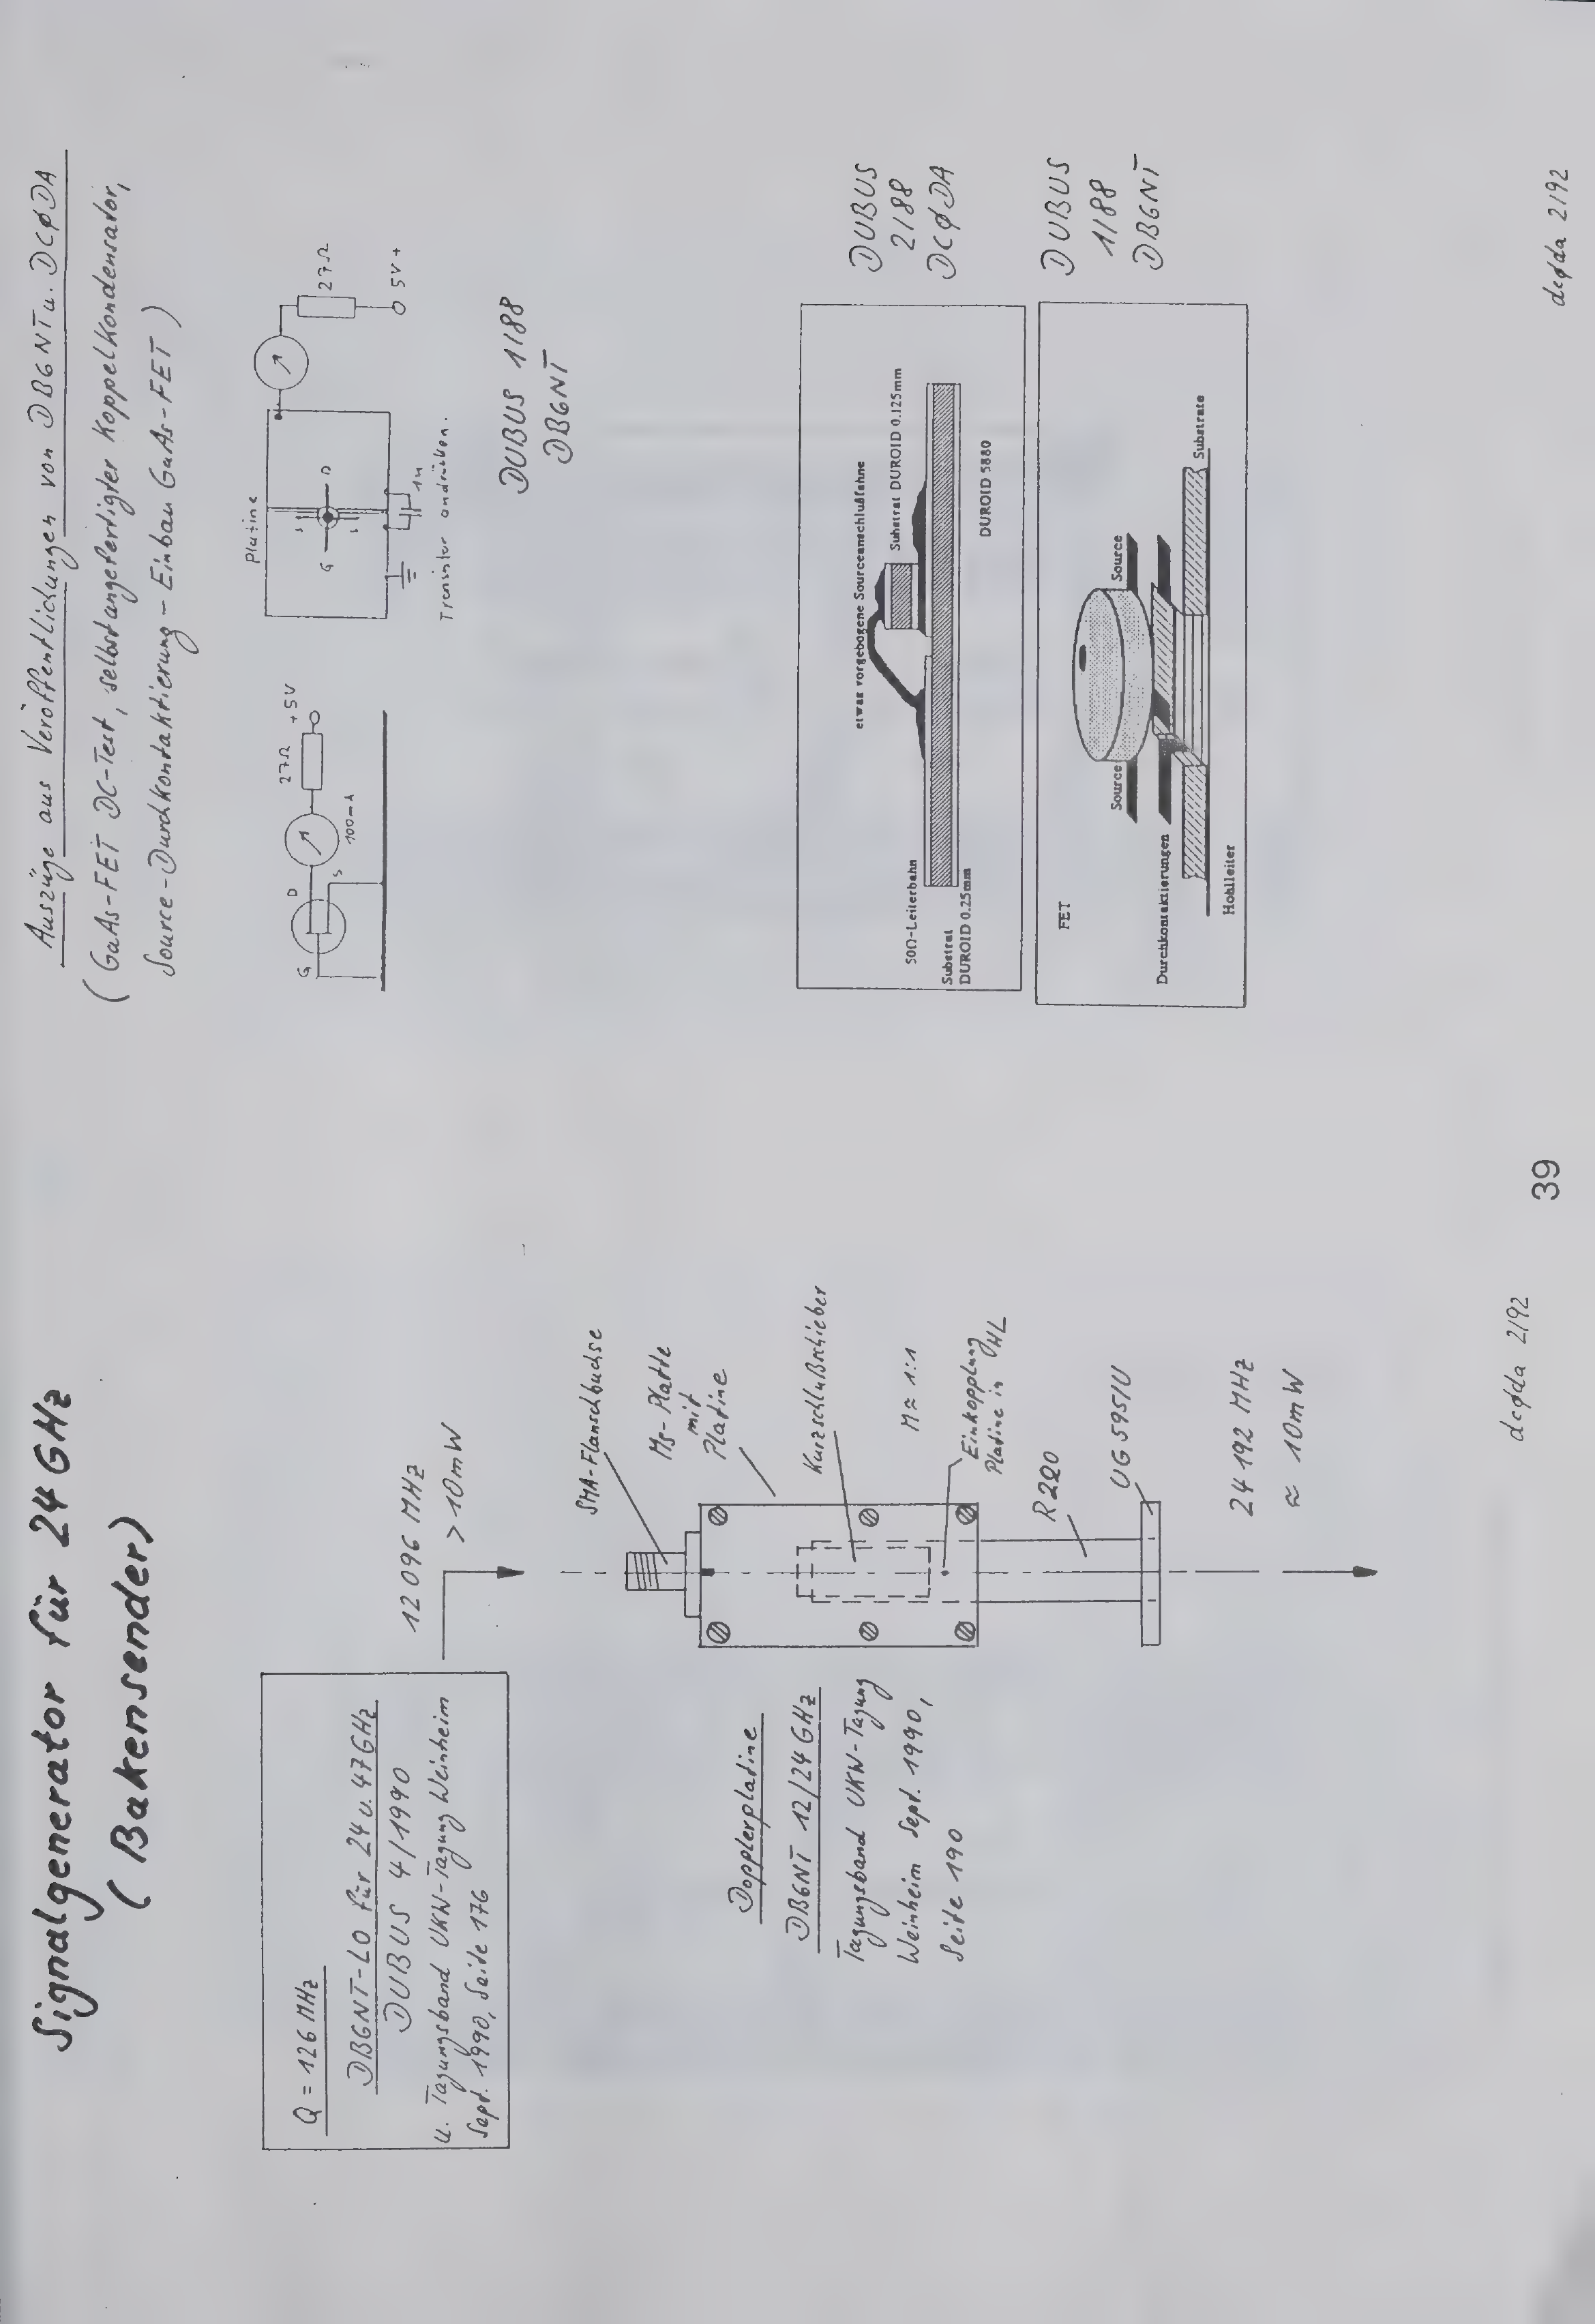 Signalgenerator für 24 GHz
(Bakensender)
Q = 126 MHz
DB6NT-LO für 24 u. 47 GHz
DUBUS 4/1990
u. Tagungsband UKW-Tagung Weinheim
Sept. 1990, Seite 176
12 096 MHz
> 10mW
SMA-Flanschbuchse
Ms-Platte
mit
Platine
Kurzschlußschieber
M ≈ 1:1
Einkopplung
Platine in HL
R220
UG 595/U
24 192 MHz
≈ 10mW
Dopplerplatine
DB6NT 12/24 GHz
Tagungsband UKW-Tagung
Weinheim Sept. 1990,
Seite 190
dcøda 2/92
39
Auszüge aus Veröffentlichungen von DB6NT u. DCØDA
(GaAs-FET DC-Test, selbstangefertigter Koppelkondensator,
Source-Durchkontaktierung - Einbau GaAs-FET)
G
D
S
100mA
27Ω
+5V
Platine
G
D
S
S
1n
27Ω
5V +
Transistor andrücken.
DUBUS 1/88
DB6NT
etwas vorgebogene Sourceanschlußfahne
50Ω-Leiterbahn
Substrat DUROID 0.125mm
Substrat
DUROID 0.25mm
DUROID 5880
DUBUS
2/88
DCØDA
FET
Source
Source
Durchkontaktierungen
Substrate
Hohlleiter
DUBUS
1/88
DB6NT
dcøda 2/92